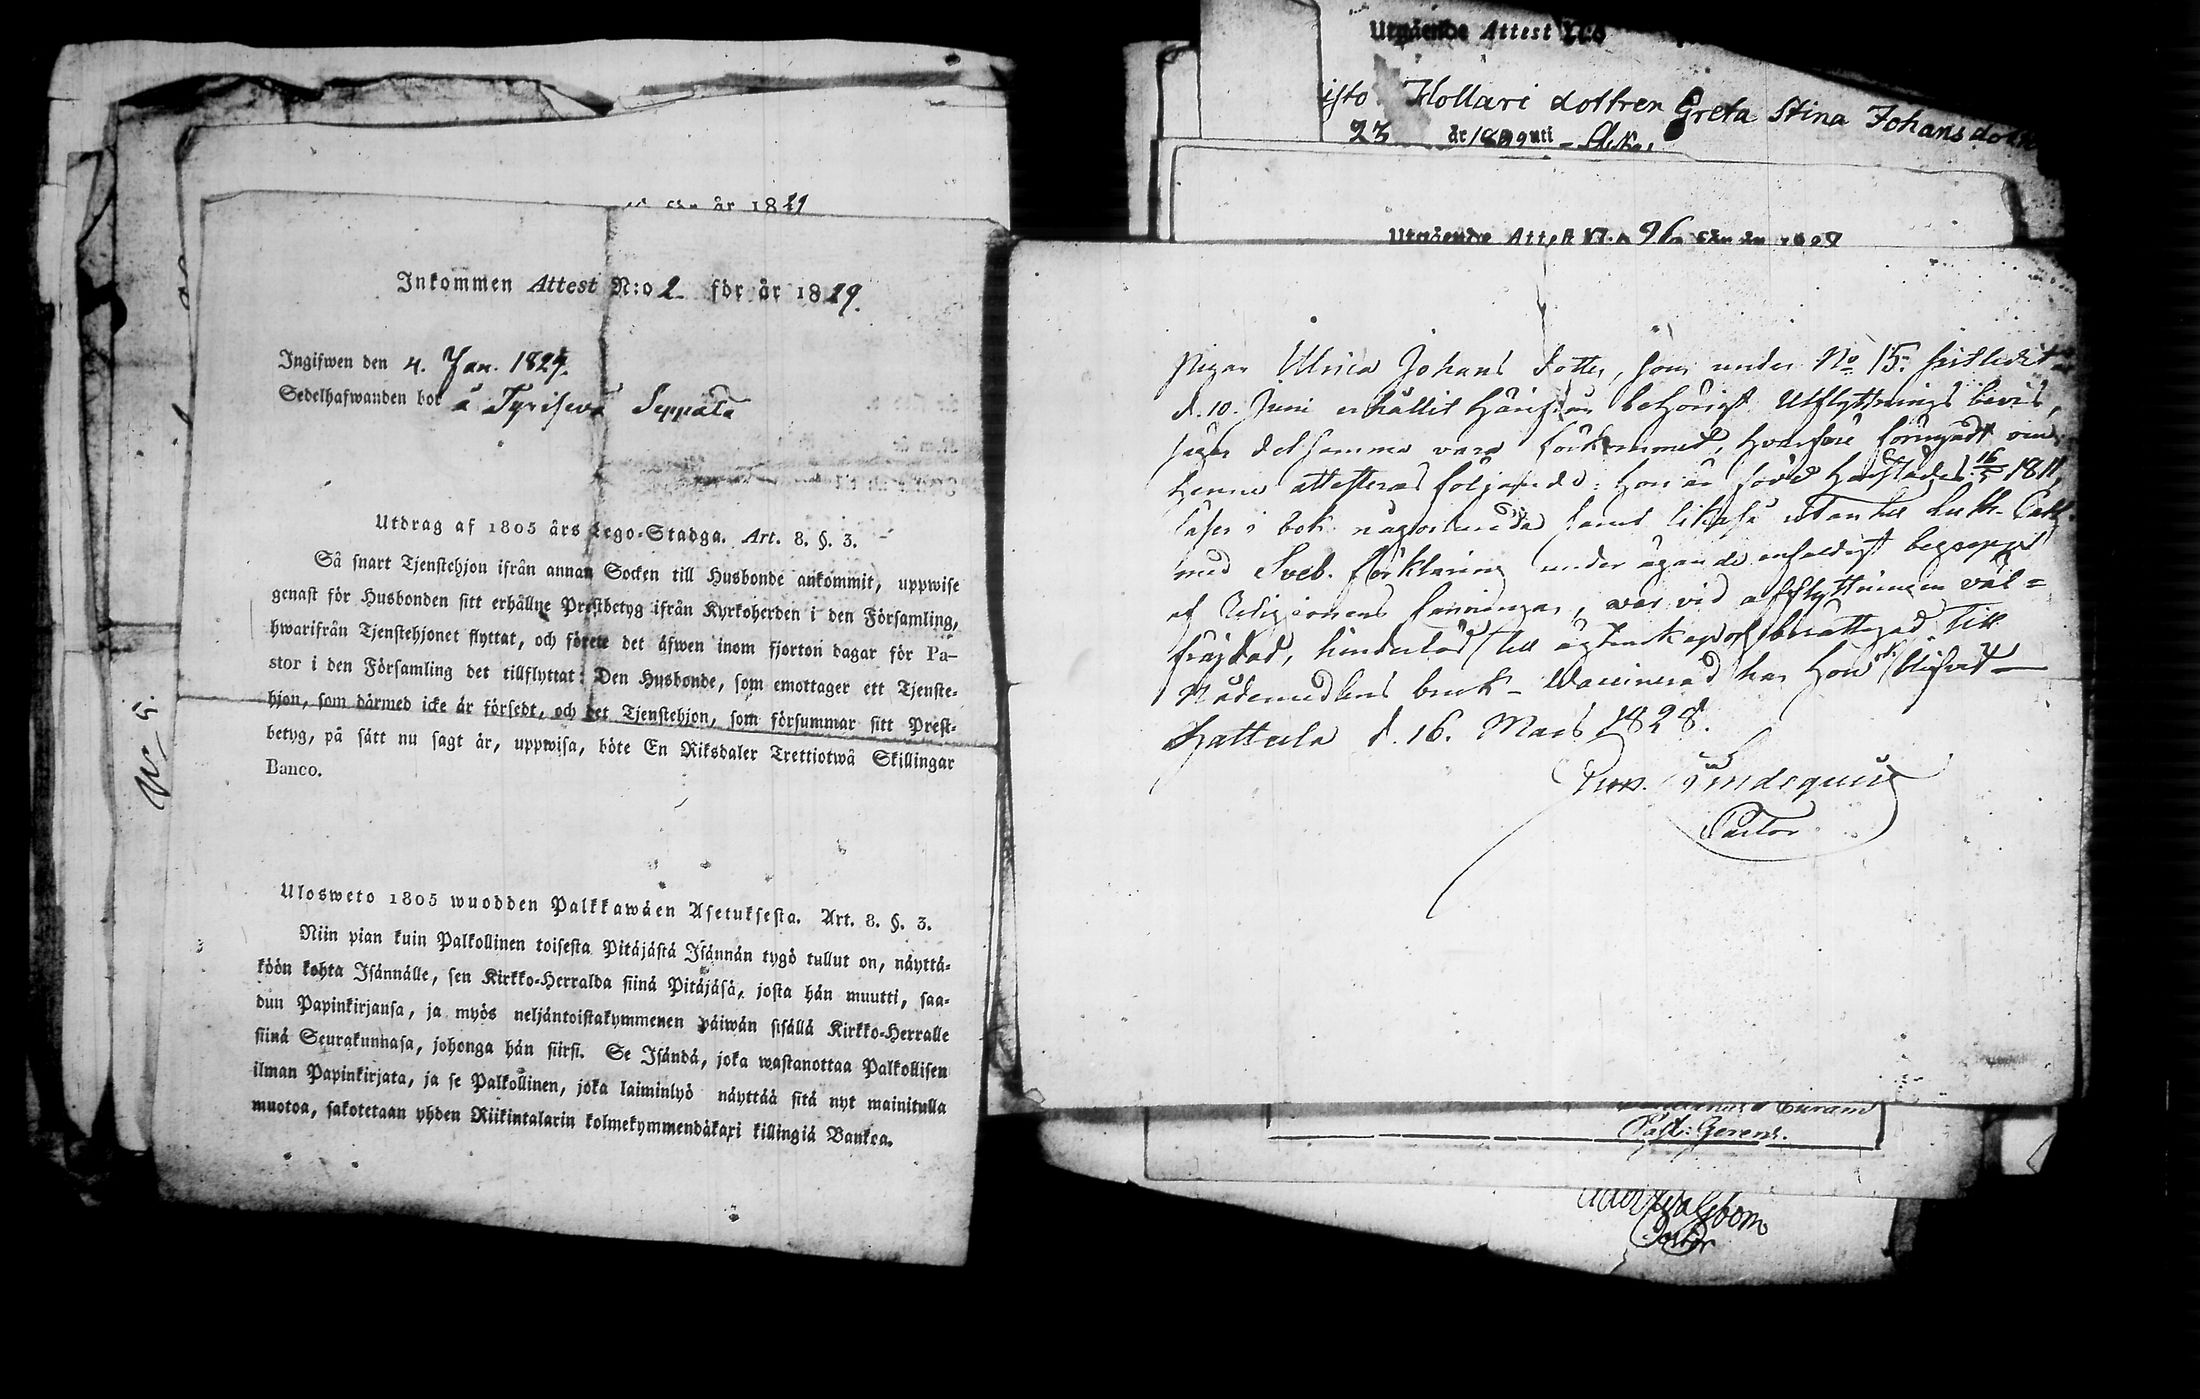 för år 1829
Inkommen Attest N:o 2 för år 1829.
Ingifwen den 4. Jan. 1829.
Sedelhafwanden bor å Tyrisevä Seppälä
Utdrag af 1805 års Lego-Stadga. Art. 8. §. 3.
Så snart Tjenstehjon ifrån annan Socken till Husbonde ankommit, uppwise
genast för Husbonden sitt erhållne Prestbetyg ifrån Kyrkoherden i den Församling,
hwarifrån Tjenstehjonet flyttat, och förete det äfwen inom fjorton dagar för Pa-
stor i den Församling det tillflyttat: Den Husbonde, som emottager ett Tjenste-
hjon, som därmed icke är försedt, och det Tjenstehjon, som försummar sitt Prest-
betyg, på sätt nu sagt är, uppwisa, böte En Riksdaler Trettiotwå Skillingar
Banco.
Ulosweto 1805 wuodden Palkkawäen Asetuksesta. Art. 8. §. 3.
Niin pian kuin Palkollinen toisesta Pitäjästä Isännän tygö tullut on, näyttä-
köön kohta Isännälle, sen Kirkko-Herralda siinä Pitäjäsä, josta hän muutti, saa-
dun Papinkirjansa, ja myös neljäntoistakymmenen päiwän sisällä Kirkko-Herralle
siinä Seurakunnasa, johonga hän siirsi. Se Isändä, joka wastanottaa Palkollisen
ilman Papinkirjata, ja se Palkollinen, joka laiminlyö näyttää sitä nyt mainitulla
muotoa, sakotetaan yhden Riikintalarin kolmekymmendäkaxi killingiä Bankoa.
Utgående Attest
Hollari dottren Greta Stina Johansdotter
23 år uti
Utgående Attest N:o 96 för år
Pigan Ulrica Johans dotter, som under No 15. sistledit
d. 10. Juni erhållit härifrån behörigt Utflyttnings bevis,
säger detsamma vara förkommit, hvarföre förnyadt om
henne attesteras följande: hon är född härstädes 16/5 1811,
läser i bok någorlunda samt likaså utantill Luth. Cath.
med Sveb. förklaring under ägande enfaldigt begrepp
af Religionens sanningar, war vid afflyttningen väl=
frägdad, hinderlös till ägtenskap och berättigad till
Nådemedlens bruk - Vaccinerad har hon blifvit
Hattula d. 16. Mars 1828.
Lindequist
Pastor
Past: Gerens.
Pastor